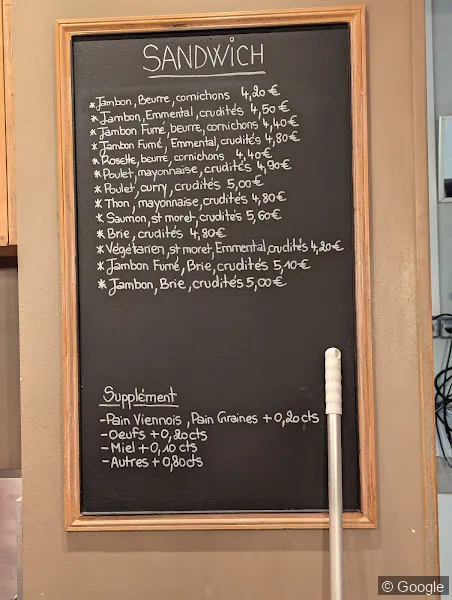 SANDWICH
* Jambon, Beurre, cornichons 4,20€
* Jambon, Emmental, crudités 4,50€
* Jambon Fumé, beurre, cornichons 4,40€
* Jambon Fumé, Emmental, crudités 4,80€
* Rosette, beurre, cornichons 4,40€
* Poulet, mayonnaise, crudités 4,90€
* Poulet, curry, crudités 5,00€
* Thon, mayonnaise, crudités 4,80€
* Saumon, st moret, crudités 5,60€
* Brie, crudités 4,80€
* Végétarien, st moret, Emmental, crudités 4,20€
* Jambon Fumé, Brie, crudités 5,10€
* Jambon, Brie, crudités 5,00€
Supplément
- Pain Viennois, Pain Graines + 0,20cts
- Oeufs + 0,20cts
- Miel + 0,10 cts
- Autres + 0,80cts
© Google